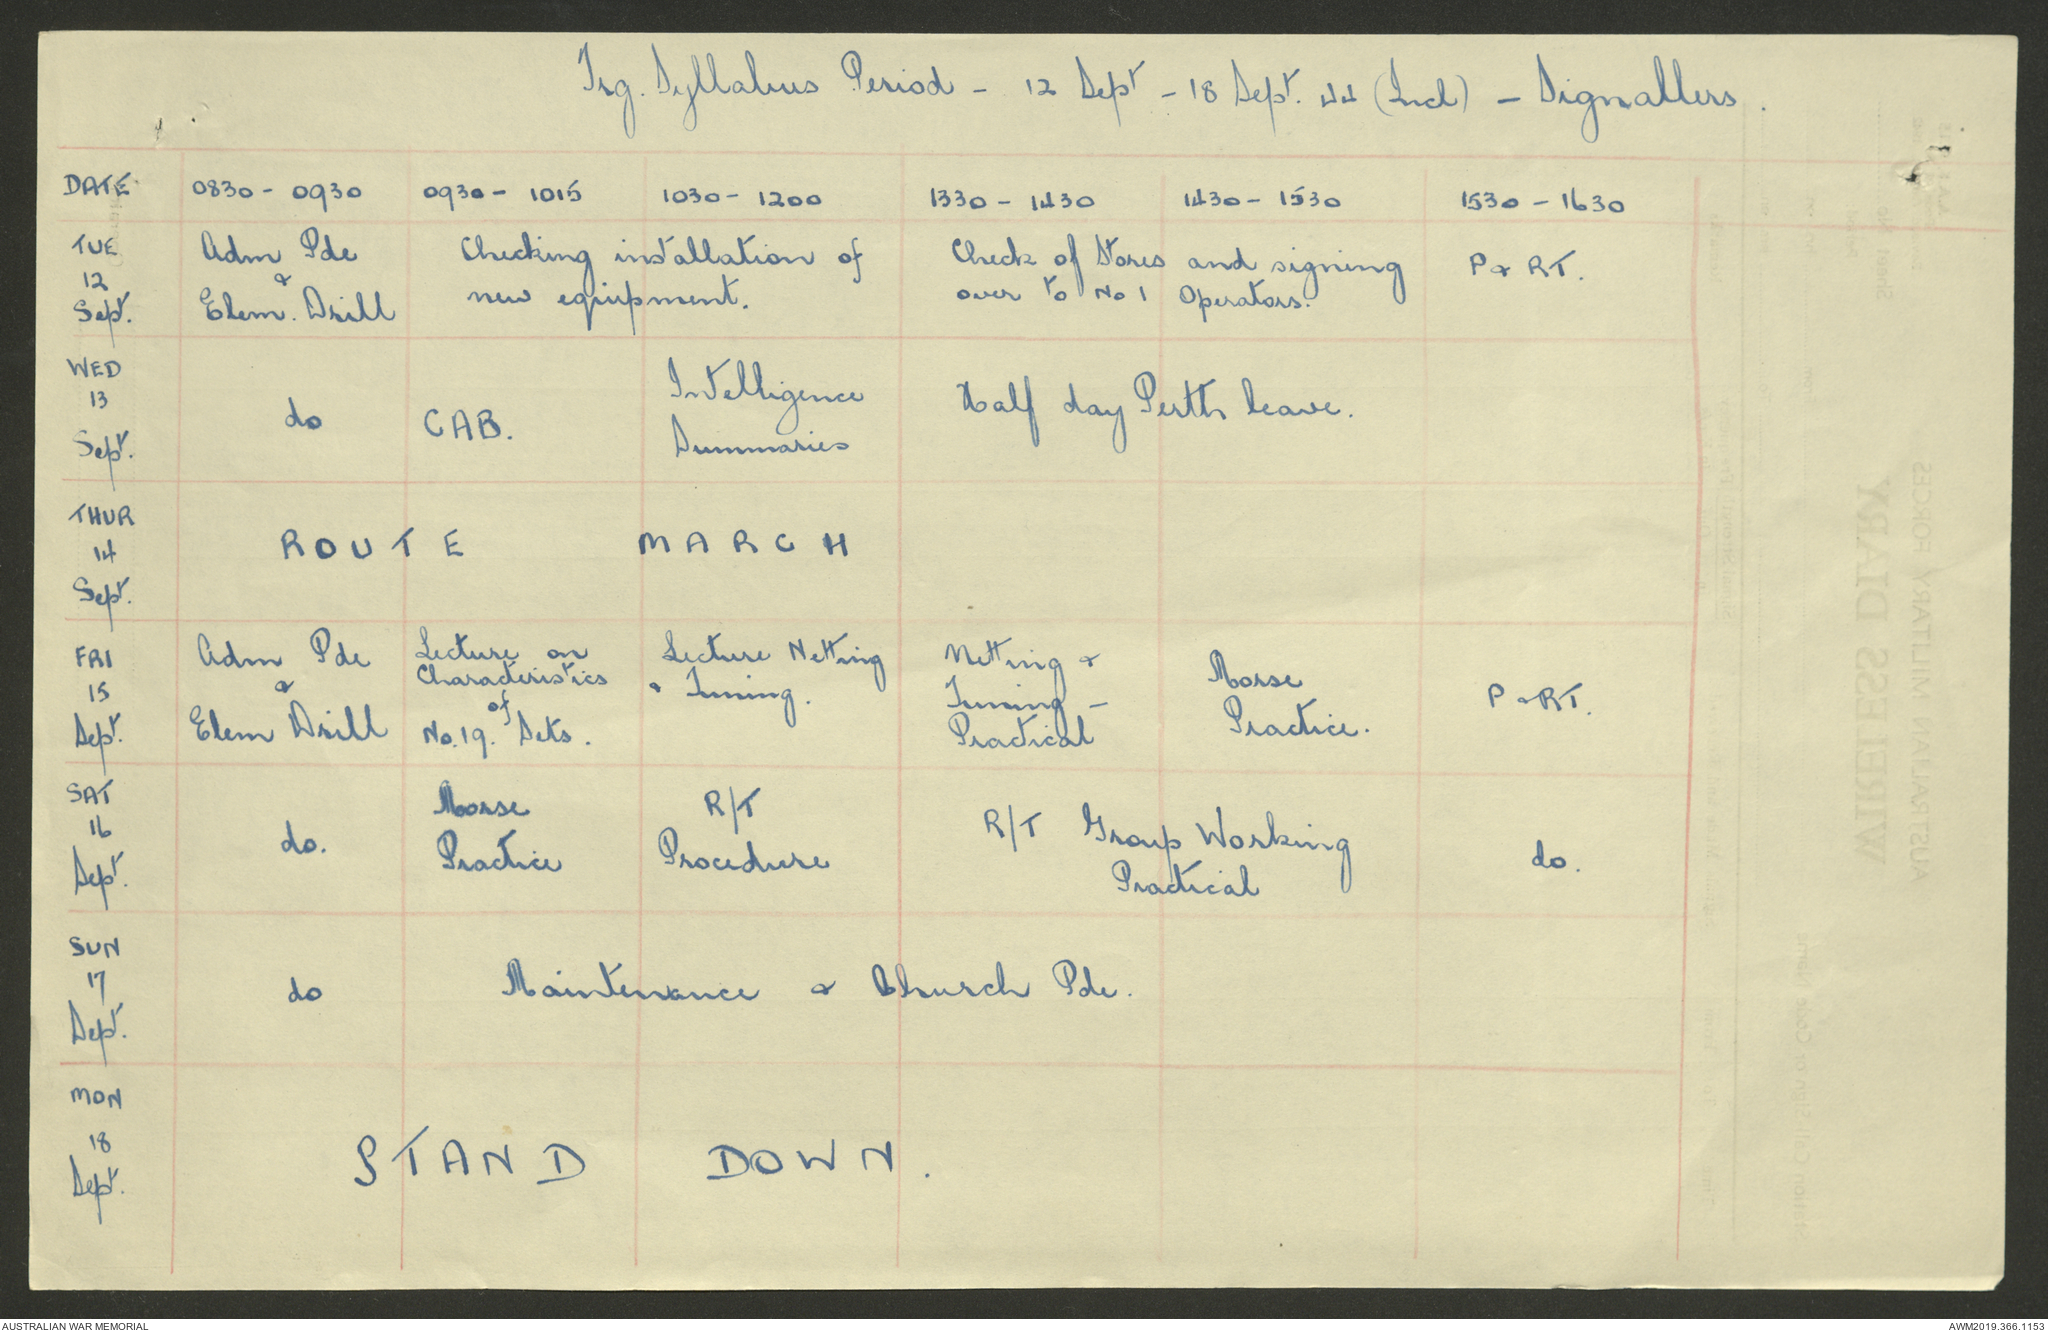 Trg. Syllabus Period - 12 Sept - 18 Sept. 44 (Incl) - Signallers.
DATE 0830 - 0930 0930 - 1015 1030 - 1200 1330 - 1430 1430 - 1530 1530 - 1630
TUE
12
Sept.
Adm Pde
&
Elem. Drill
Checking installation of
new equipment.
Check of Stores and signing
over to No 1 Operators.
P & RT.
WED
13
Sept.
do
CAB.
Intelligence
Summaries
Half day Perth leave.
THUR
14
Sept.
ROUTE MARCH
FRI
15
Sept.
Adm Pde
&
Elem Drill
Lecture on
Characteristics
of
No. 19. Sets.
Lecture Netting
& Tuning.
Netting &
Tuning -
Practical
Morse
Practice.
P & RT.
SAT
16
Sept.
do.
Morse
Practice
R/T
Procedure
R/T Group Working
Practical
do.
SUN
17
Sept.
do
Maintenance & Church Pde.
MON
18
Sept.
STAND DOWN.
WIRELESS DIARY
AUSTRALIAN MILITARY FORCES
Station Call Sign or Code Name
Sheet No
AUSTRALIAN WAR MEMORIAL
AWM2019.366.1153